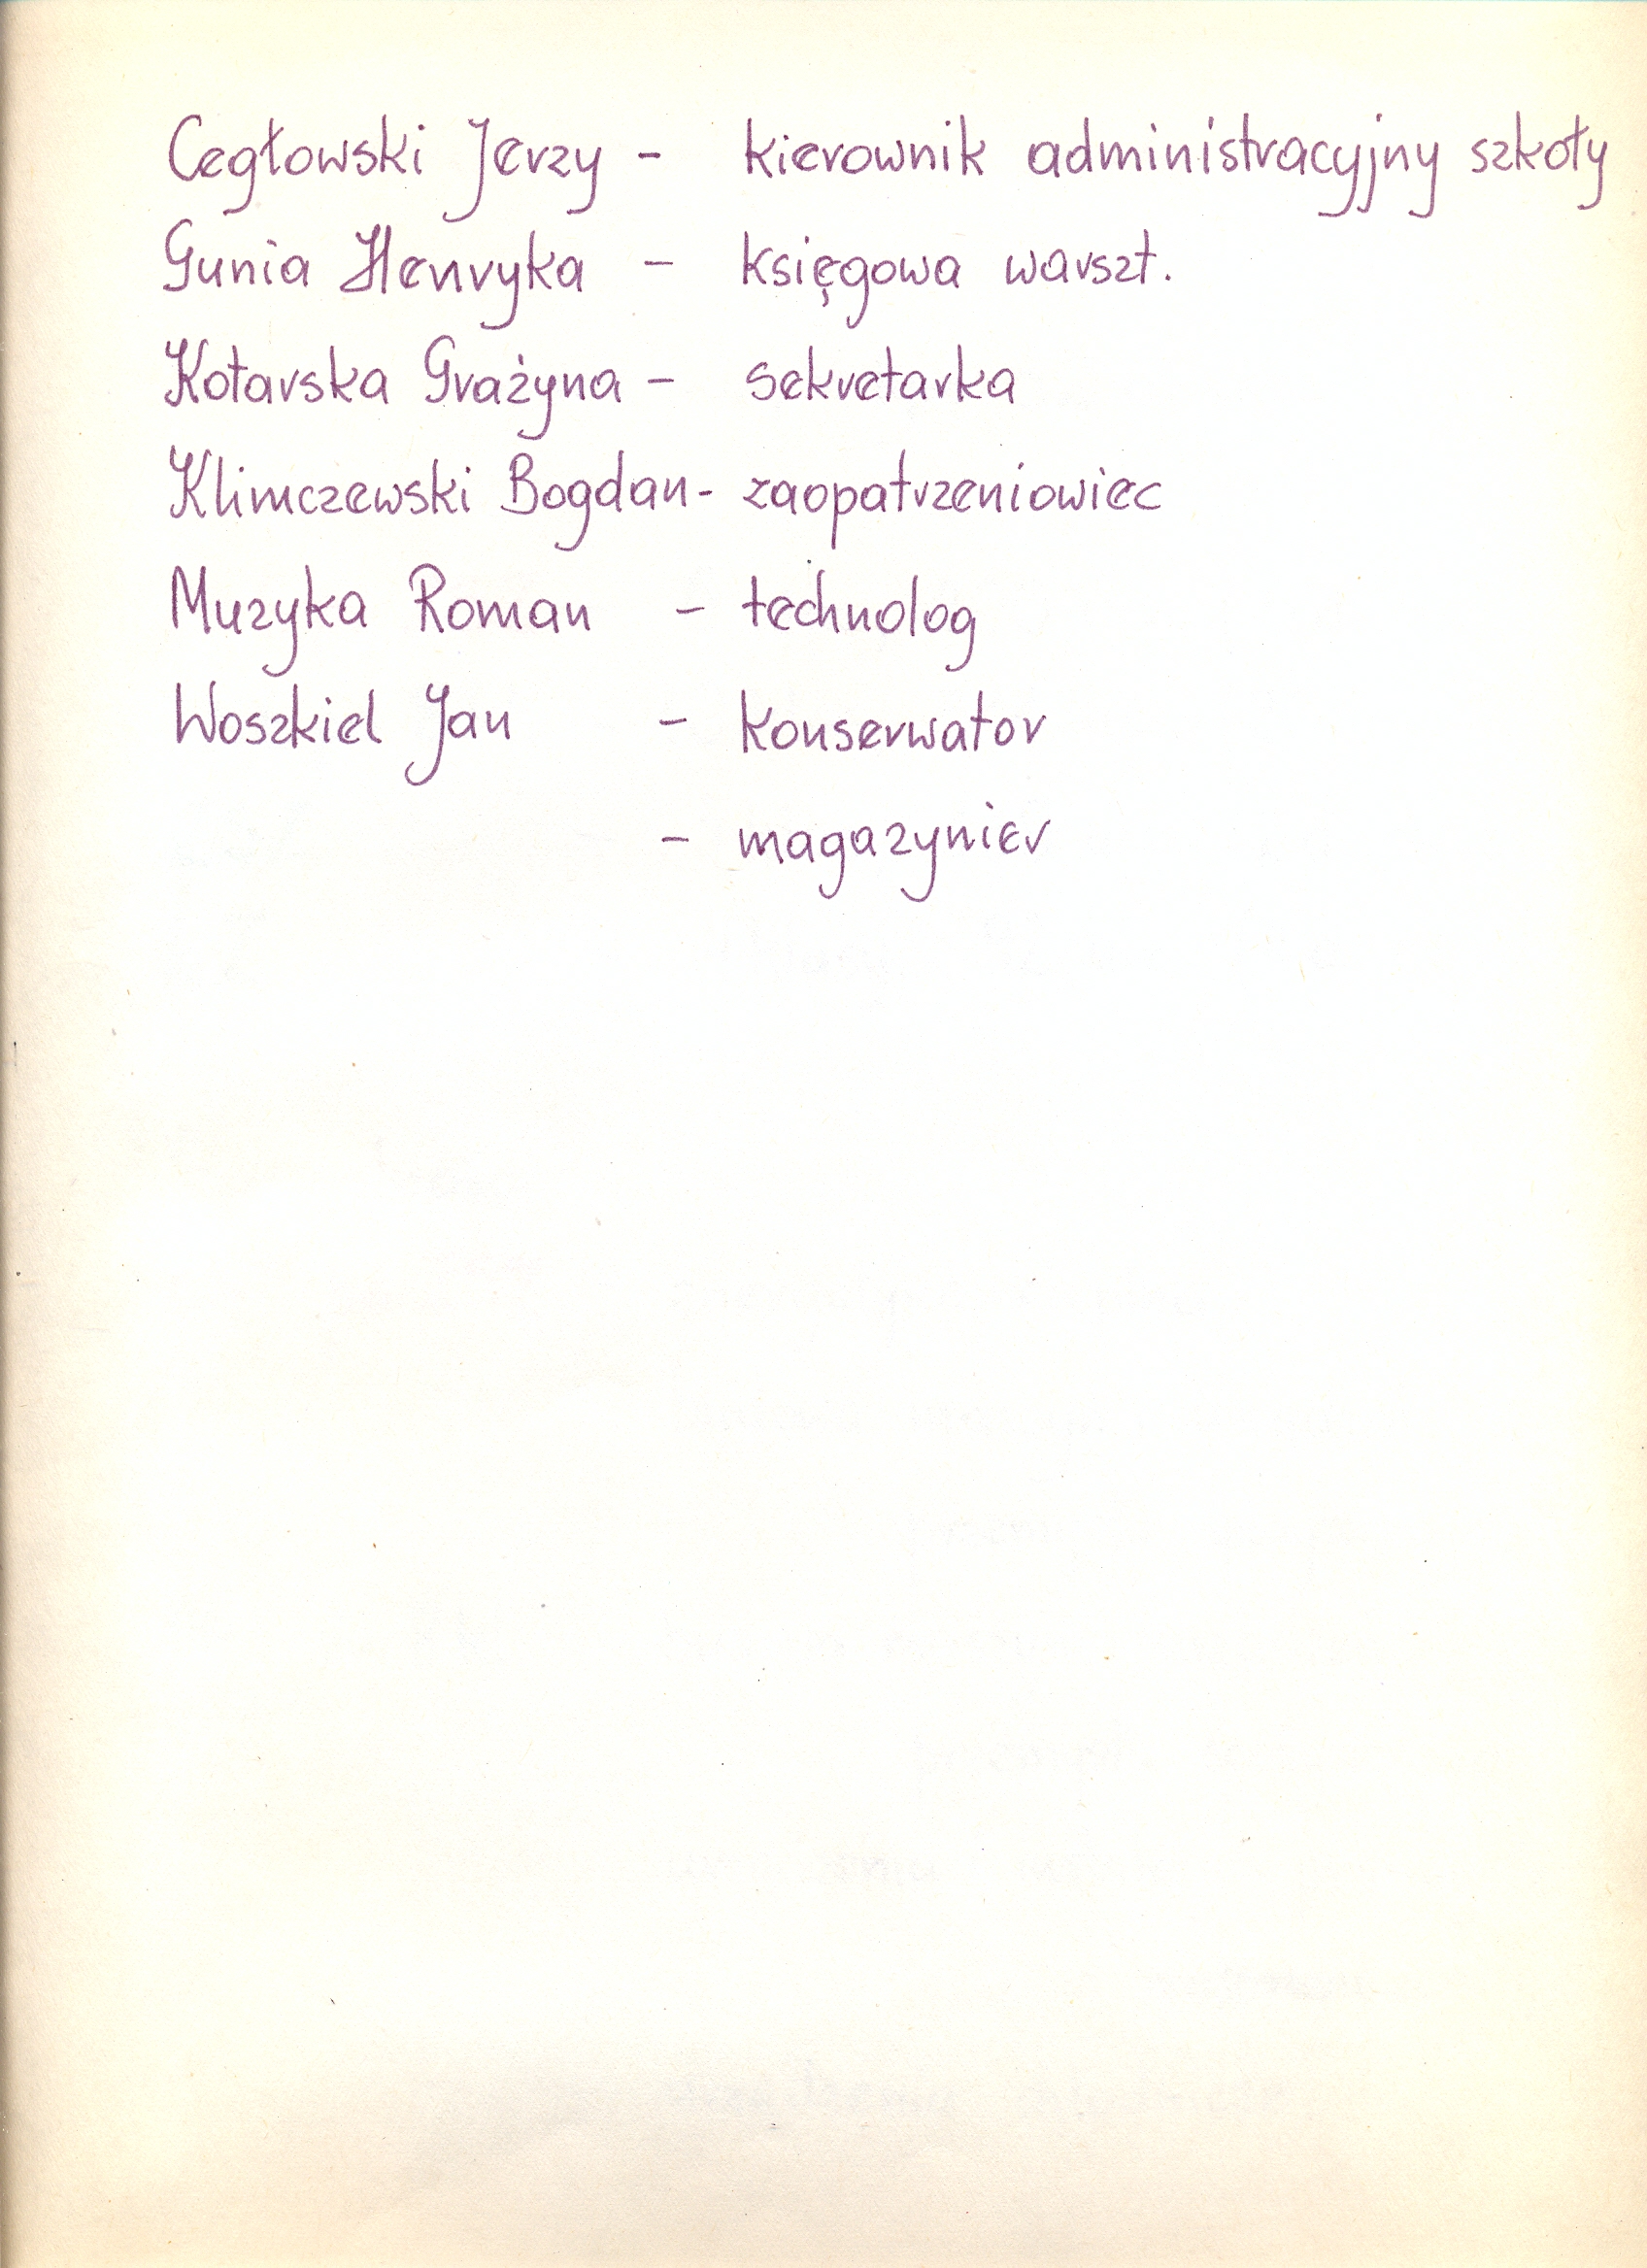 Cegłowski Jerzy - kierownik administracyjny szkoły
Gunia Henryka - księgowa warszt.
Kotarska Grażyna - sekretarka
Klimczewski Bogdan - zaopatrzeniowiec
Muzyka Roman - technolog
Woszkiel Jan - konserwator
- magazynier